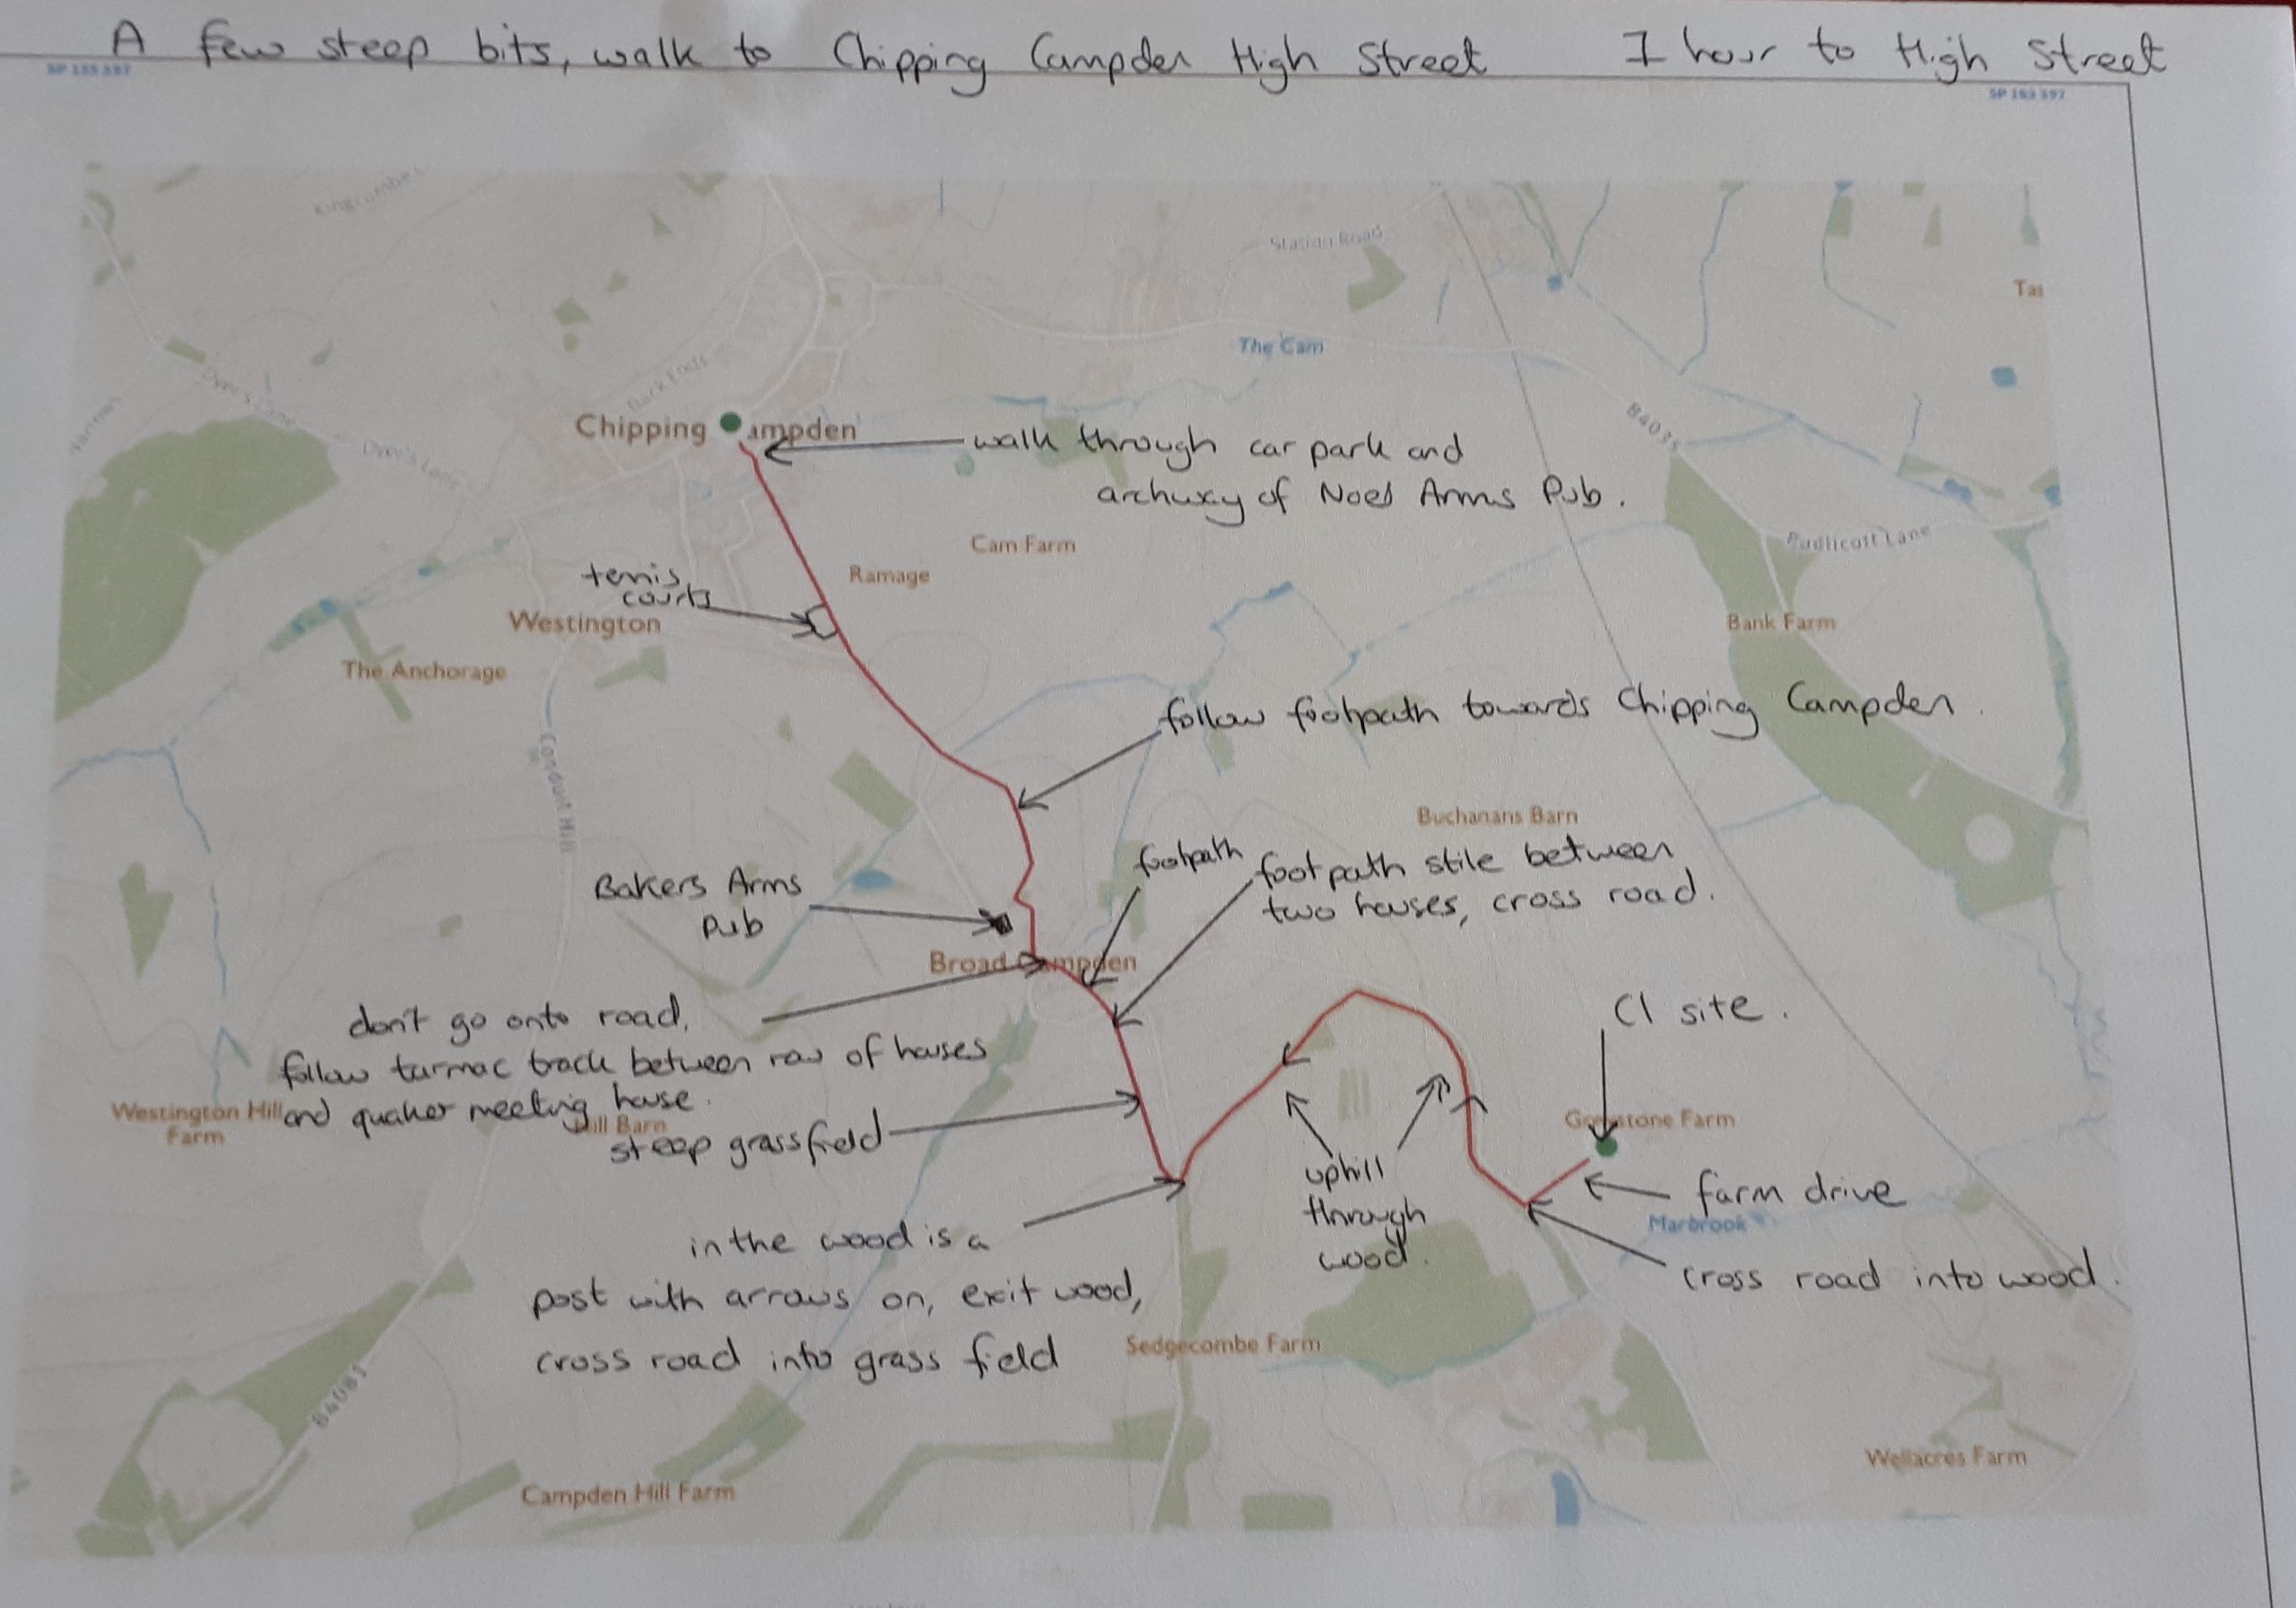 A few steep bits, walk to Chipping Campden High Street 1 hour to High Street
SP 193 597
Kingcombe
Station Road
Tas
The Cam
Back Ends
Dyer's Lane
Dyer's Lane
B4035
Chipping ampden
walk through car park and
archway of Noel Arms Pub.
Cam Farm
Pudlicott Lane
Ramage
tennis
courts
Westington
Bank Farm
The Anchorage
follow footpath towards Chipping Campden.
Conduit Hill
Buchanans Barn
footpath
footpath stile between
two houses, cross road.
Bakers Arms
Pub
Broad Campden
CI site.
don't go onto road,
follow tarmac track between row of houses
and quaker meeting house.
Westington Hill
Farm
Hill Barn
steep grassfield
Greystone Farm
uphill
through
wood.
farm drive
Marbrook
in the wood is a
post with arrows on, exit wood,
cross road into grass field
cross road into wood.
Sedgecombe Farm
B4081
Campden Hill Farm
Wellacres Farm